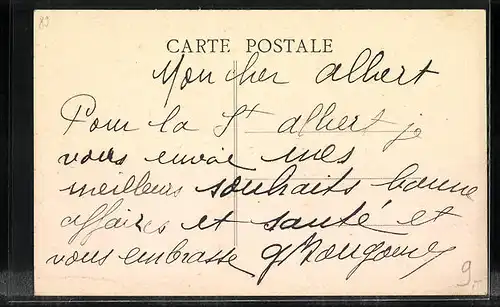 89
CARTE POSTALE
Mon cher albert
Pour la St albert je
vous envoie mes
meilleurs souhaits bonne
affaires et santé et
vous embrasse
9.-